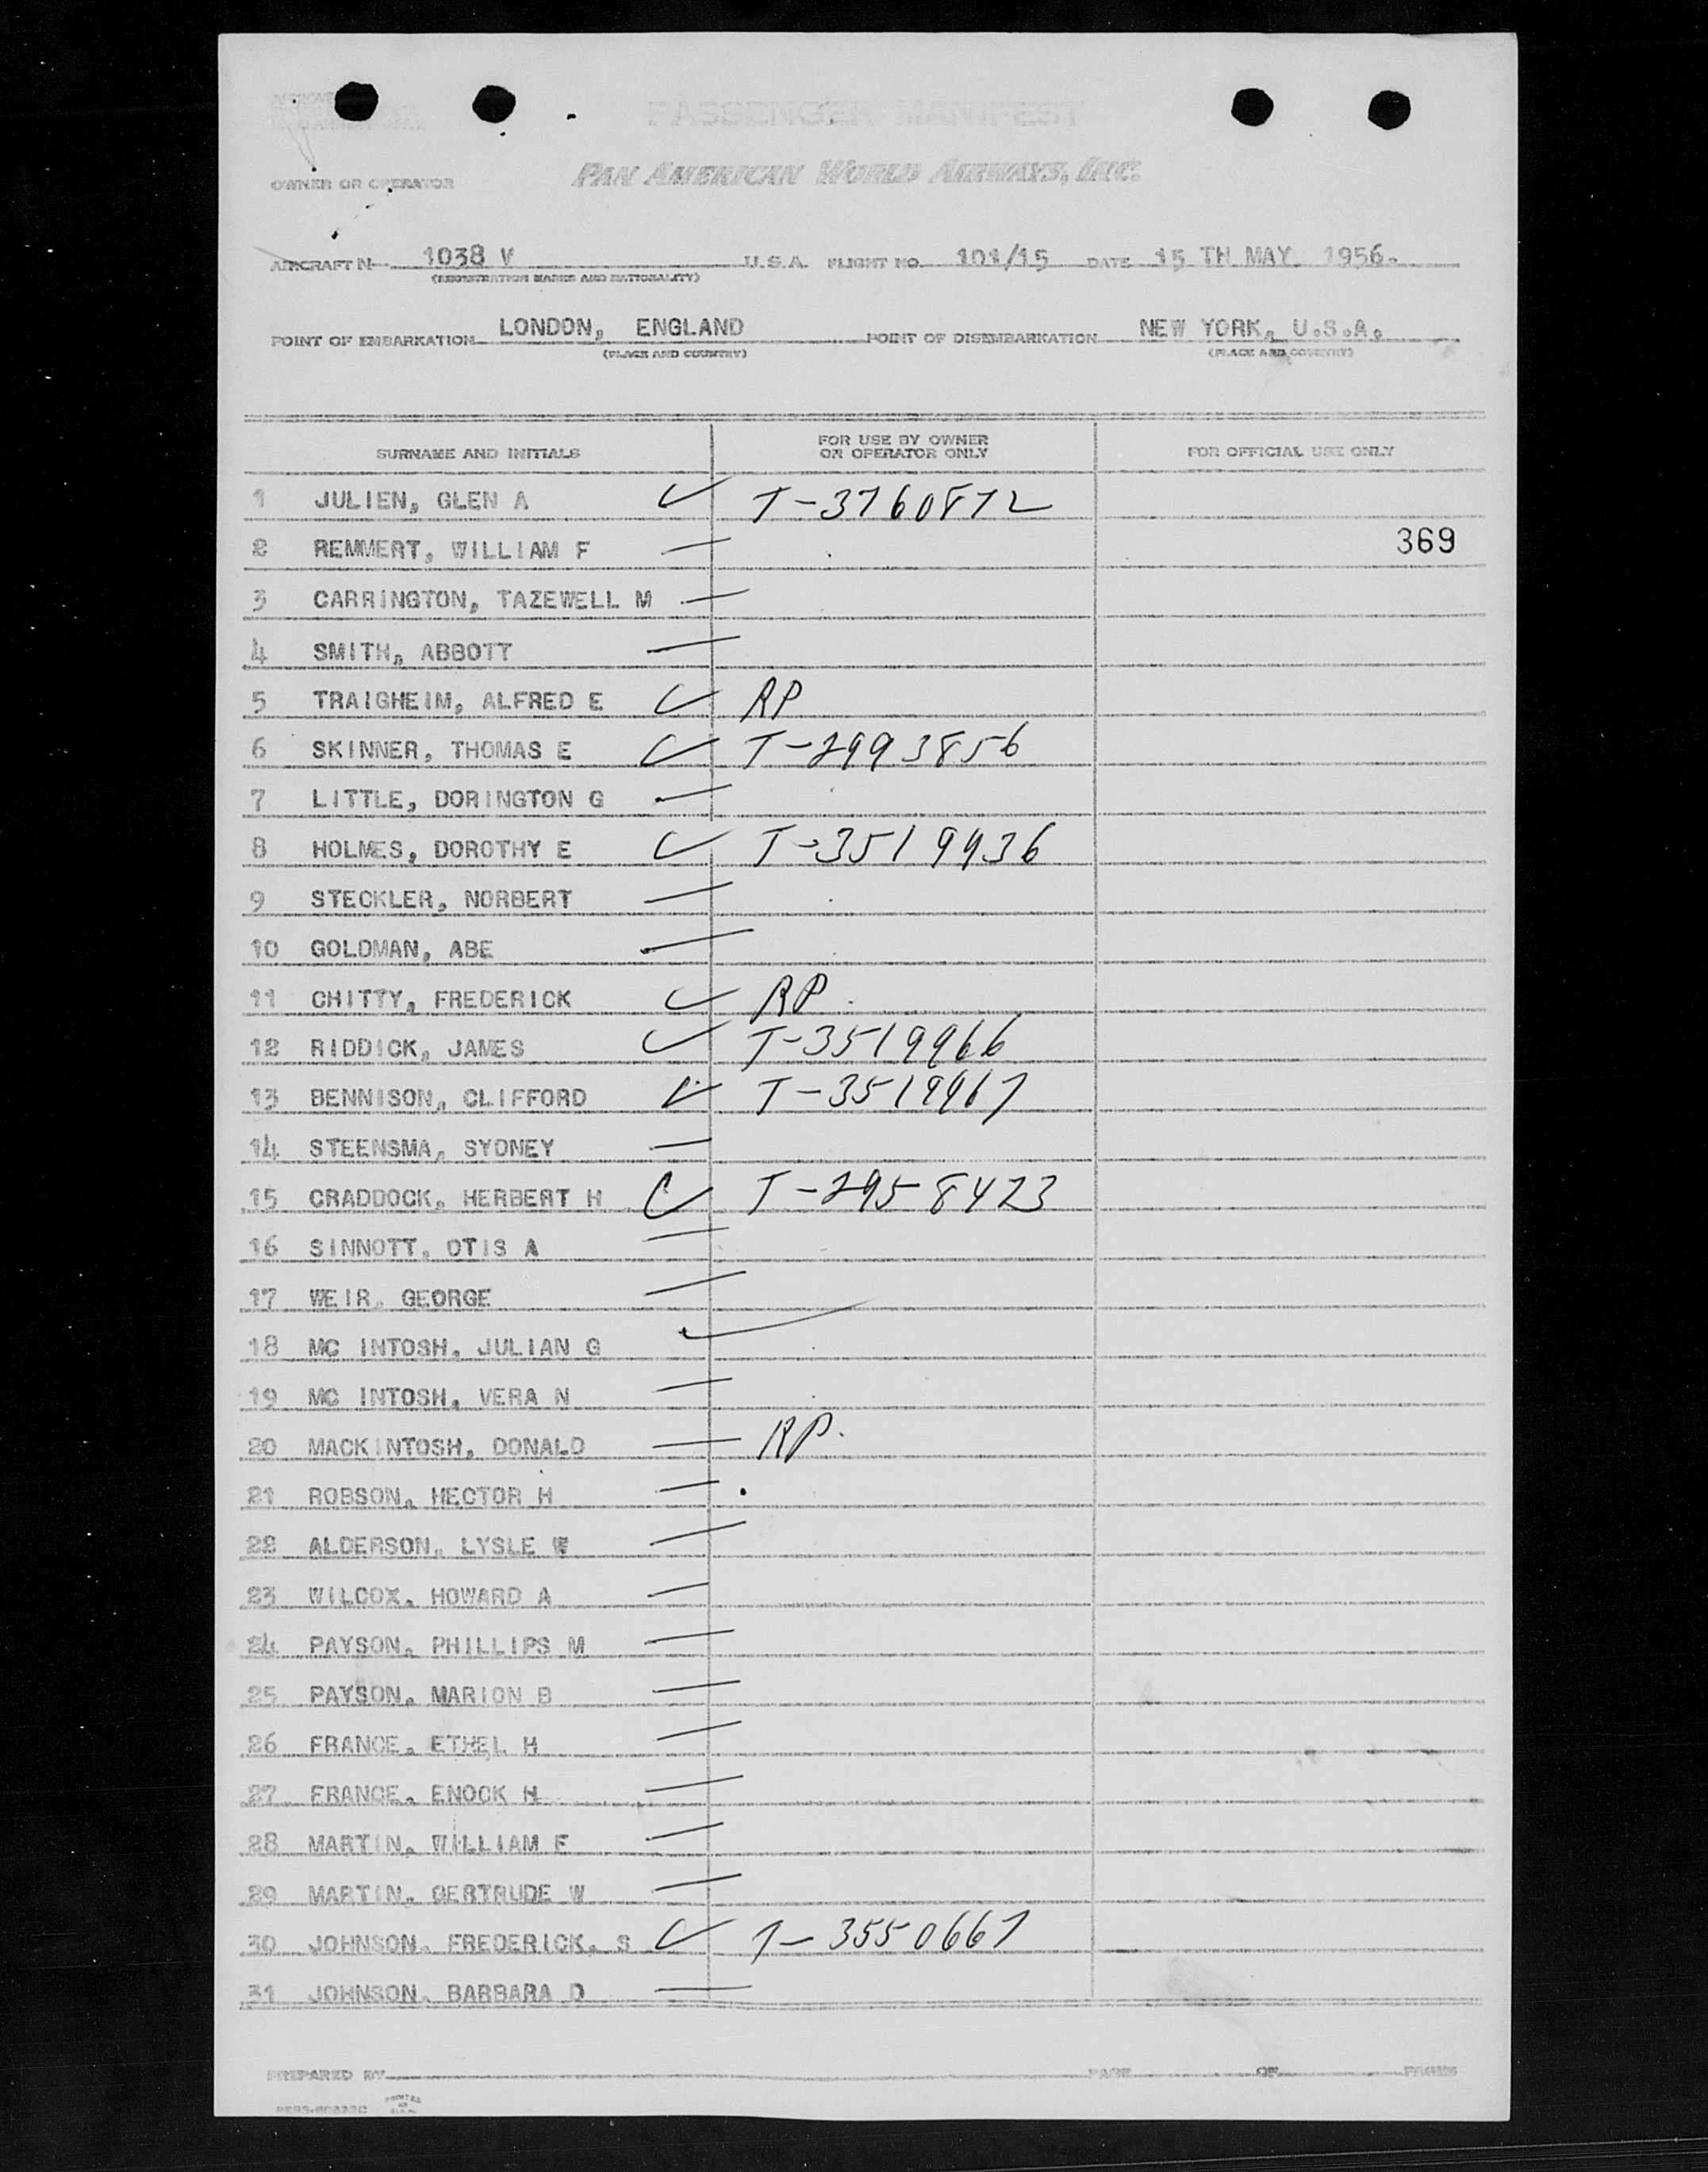 PASSENGER MANIFEST
OWNER OR OPERATOR
PAN AMERICAN WORLD AIRWAYS, INC.
AIRCRAFT N 1038 V U.S.A. FLIGHT NO. 101/15 DATE 15 TH MAY 1956.
(REGISTRATION MARKS AND NATIONALITY)
POINT OF EMBARKATION LONDON, ENGLAND POINT OF DISEMBARKATION NEW YORK, U.S.A.
(PLACE AND COUNTRY) (PLACE AND COUNTRY)
SURNAME AND INITIALS FOR USE BY OWNER OR OPERATOR ONLY FOR OFFICIAL USE ONLY
1 JULIEN, GLEN A T-3760872
2 REMMERT, WILLIAM F 369
3 CARRINGTON, TAZEWELL M
4 SMITH, ABBOTT
5 TRAIGHEIM, ALFRED E RP
6 SKINNER, THOMAS E T-2993856
7 LITTLE, DORINGTON G
8 HOLMES, DOROTHY E T-3519936
9 STECKLER, NORBERT
10 GOLDMAN, ABE
11 CHITTY, FREDERICK RP
12 RIDDICK, JAMES T-3519966
13 BENNISON, CLIFFORD T-3519967
14 STEENSMA, SYDNEY
15 CRADDOCK, HERBERT H T-2958473
16 SINNOTT, OTIS A
17 WEIR, GEORGE
18 MC INTOSH, JULIAN G
19 MC INTOSH, VERA N
20 MACKINTOSH, DONALD RP.
21 ROBSON, HECTOR H
22 ALDERSON, LYSLE W
23 WILCOX, HOWARD A
24 PAYSON, PHILLIPS M
25 PAYSON, MARION B
26 FRANCE, ETHEL H
27 FRANCE, ENOCK H
28 MARTIN, WILLIAM F
29 MARTIN, GERTRUDE W
30 JOHNSON, FREDERICK, S T-3550667
31 JOHNSON, BARBARA D
PREPARED BY PAGE OF PAGES
PRINTED IN U.S.A.